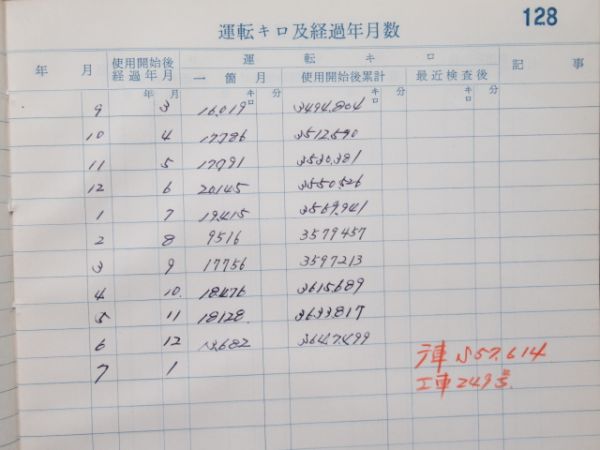 128
運転キロ及経過年月数
年 月 使用開始後経過年月 運転キロ 記事
一箇月 使用開始後累計 最近検査後
年 月 キロ 分 キロ 分 キロ 分
9 3 16.019 3494.804
10 4 17.786 3512.590
11 5 17.791 3530.381
12 6 20.145 3550.526
1 7 19.415 3569.941
2 8 9516 3579457
3 9 17756 3597213
4 10. 18.476 3615.689
5 11 18.128 3633.817
6 12 13.682 3647.499
7 1
車 S57.6.14
工車249号.